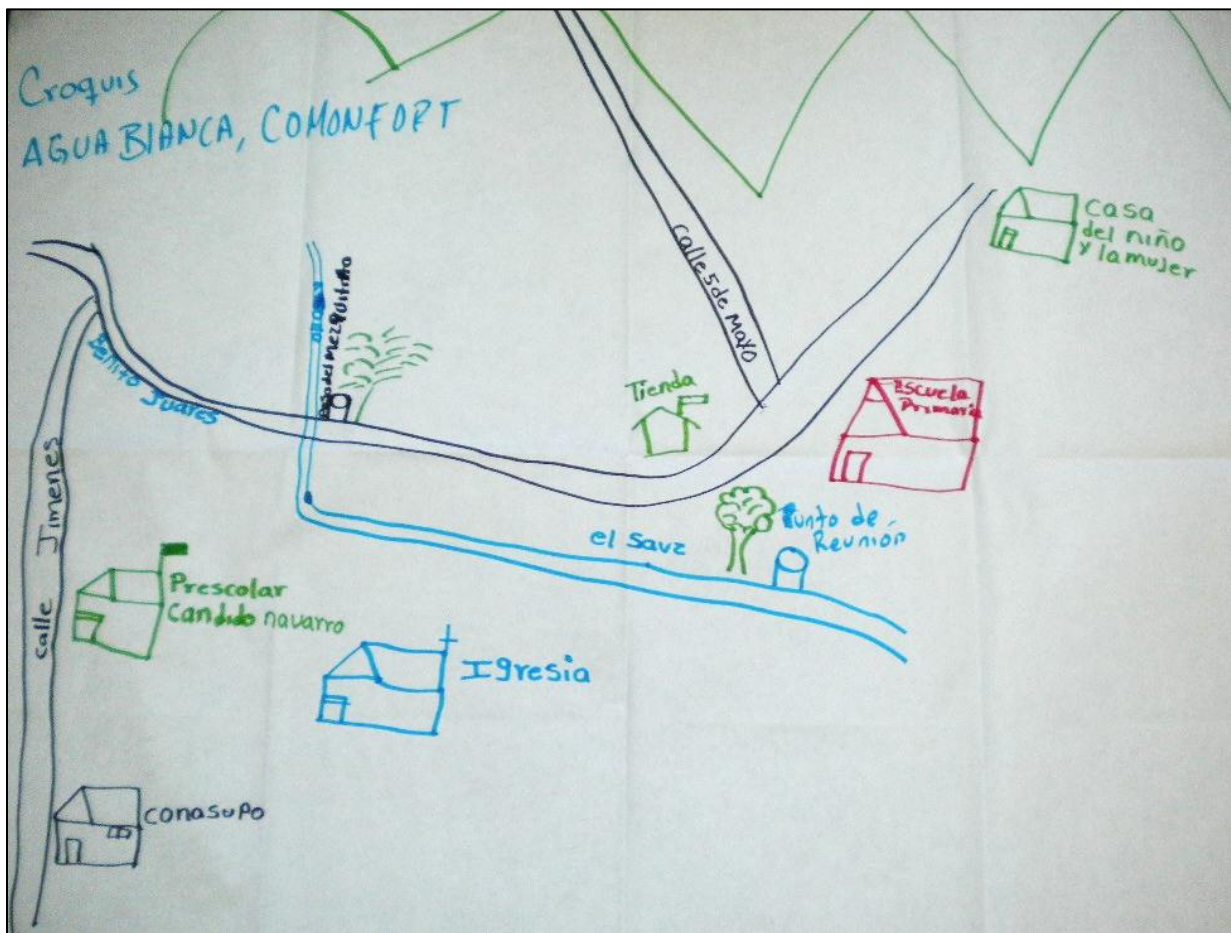 Croquis
AGUA BLANCA, COMONFORT
casa
del niño
y la mujer
calle 5 de Mayo
del Mezquitito
Benito Juares
Tienda
Escuela
Primaria
calle Jimenes
Punto de
Reunion
el Sauz
Prescolar
Candido navarro
Igresia
conasupo